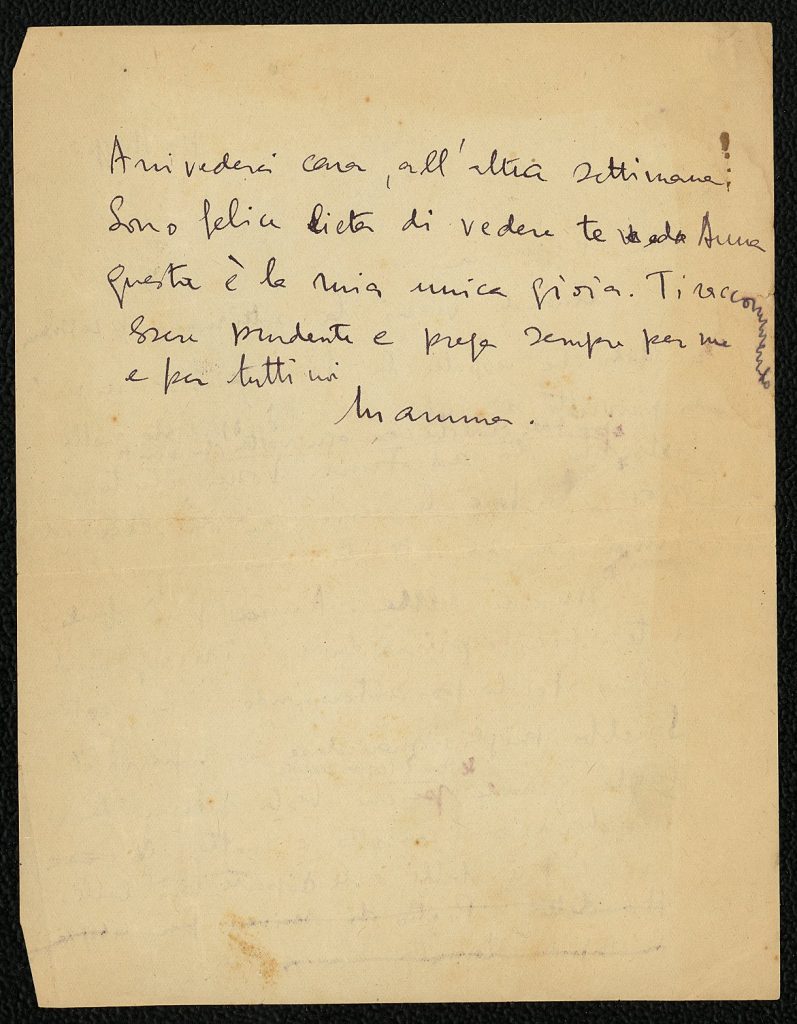 Arrivederci cara, all'altra settimana!
Sono felice lieta di vedere te ed Anna
questa è la mia unica gioia. Ti raccomando
essere prudente e prega sempre per me
e per tutti noi
Mamma.